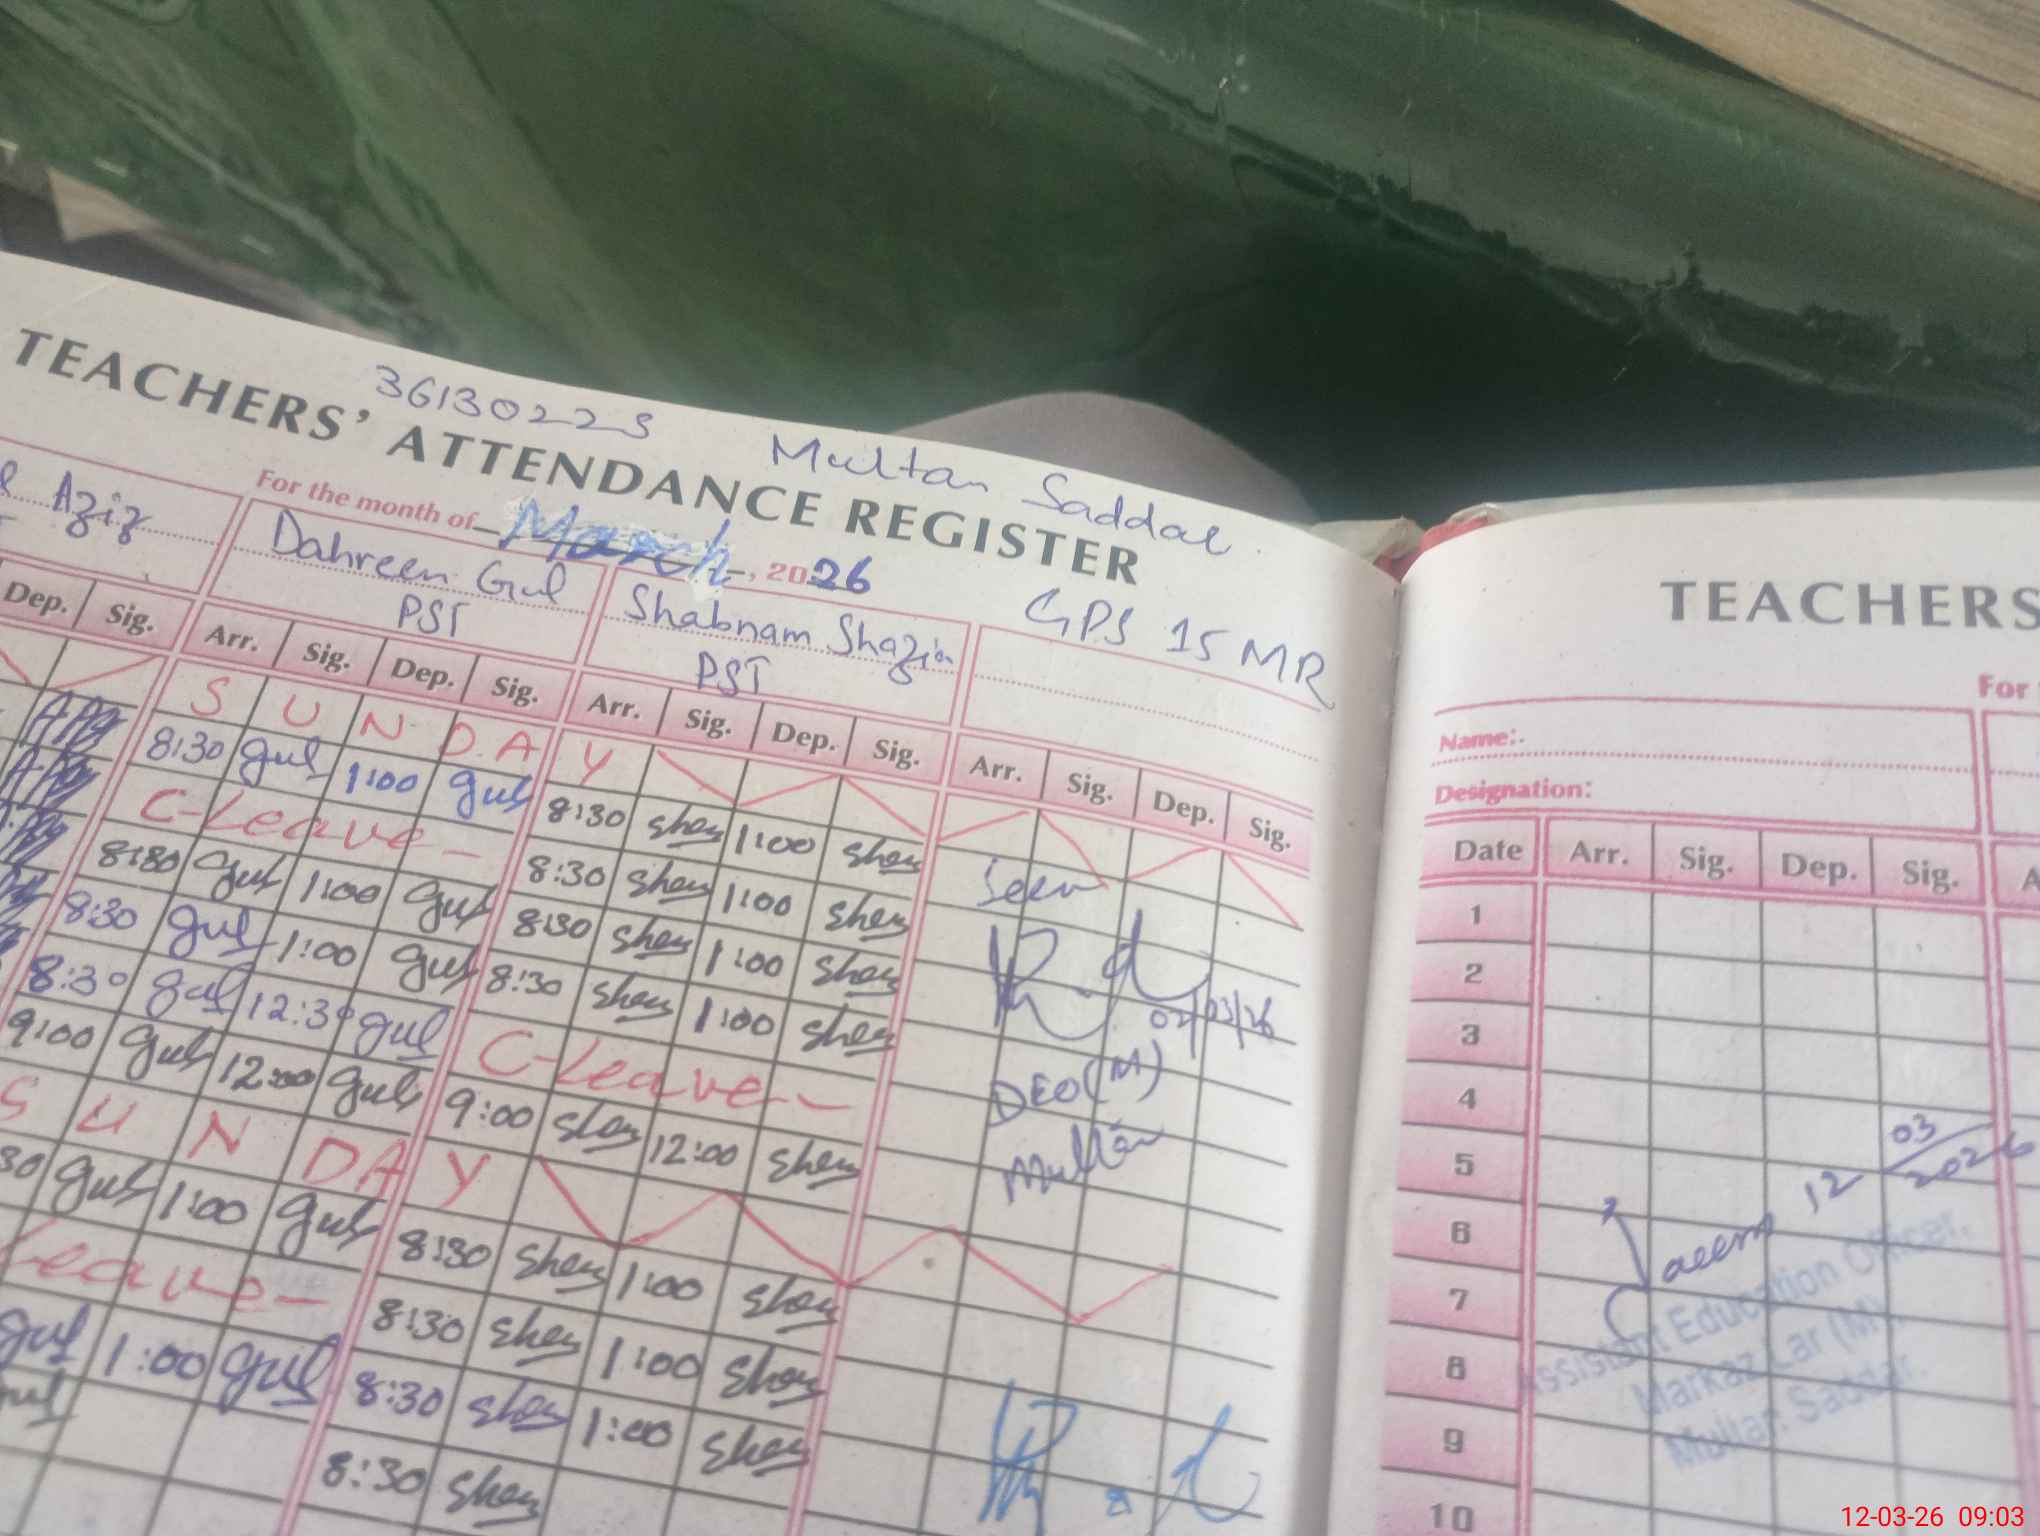 36130223 Multan Saddar
TEACHERS' ATTENDANCE REGISTER
For the month of March, 2026
GPS 15 MR
Aziz
Dahreen Gul
PST
Shabnam Shazia
PST
Dep. Sig. Arr. Sig. Dep. Sig. Arr. Sig. Dep. Sig. Arr. Sig. Dep. Sig.
S U N D A Y
8:30 gul 1:00 gul 8:30 1:00
C-Leave- 8:30 1:00
8:30 gul 1:00 gul 8:30 1:00
8:30 gul 1:00 gul 8:30 1:00
8:30 gul 12:30 gul C-Leave-
9:00 gul 12:00 gul 9:00 12:00
S U N D A Y
30 gul 1:00 gul 8:30 1:00
Leave- 8:30 1:00
gul 1:00 gul 8:30 1:00
8:30
Seen
02/03/26
DEO(M)
Multan
TEACHERS
For
Name:
Designation:
Date Arr. Sig. Dep. Sig.
1
2
3
4
5
6
7
8
9
10
12 03
2026
Assistant Education Officer
Markaz Lar (M)
Multan Saddar.
12-03-26 09:03